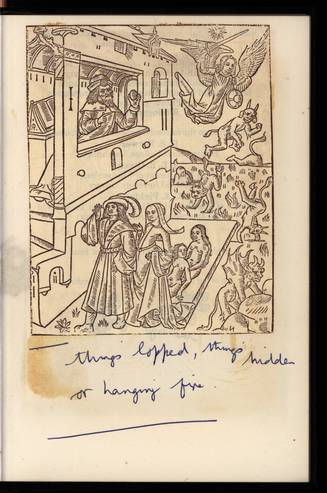 things lopped, things hidden
or hanging fire.